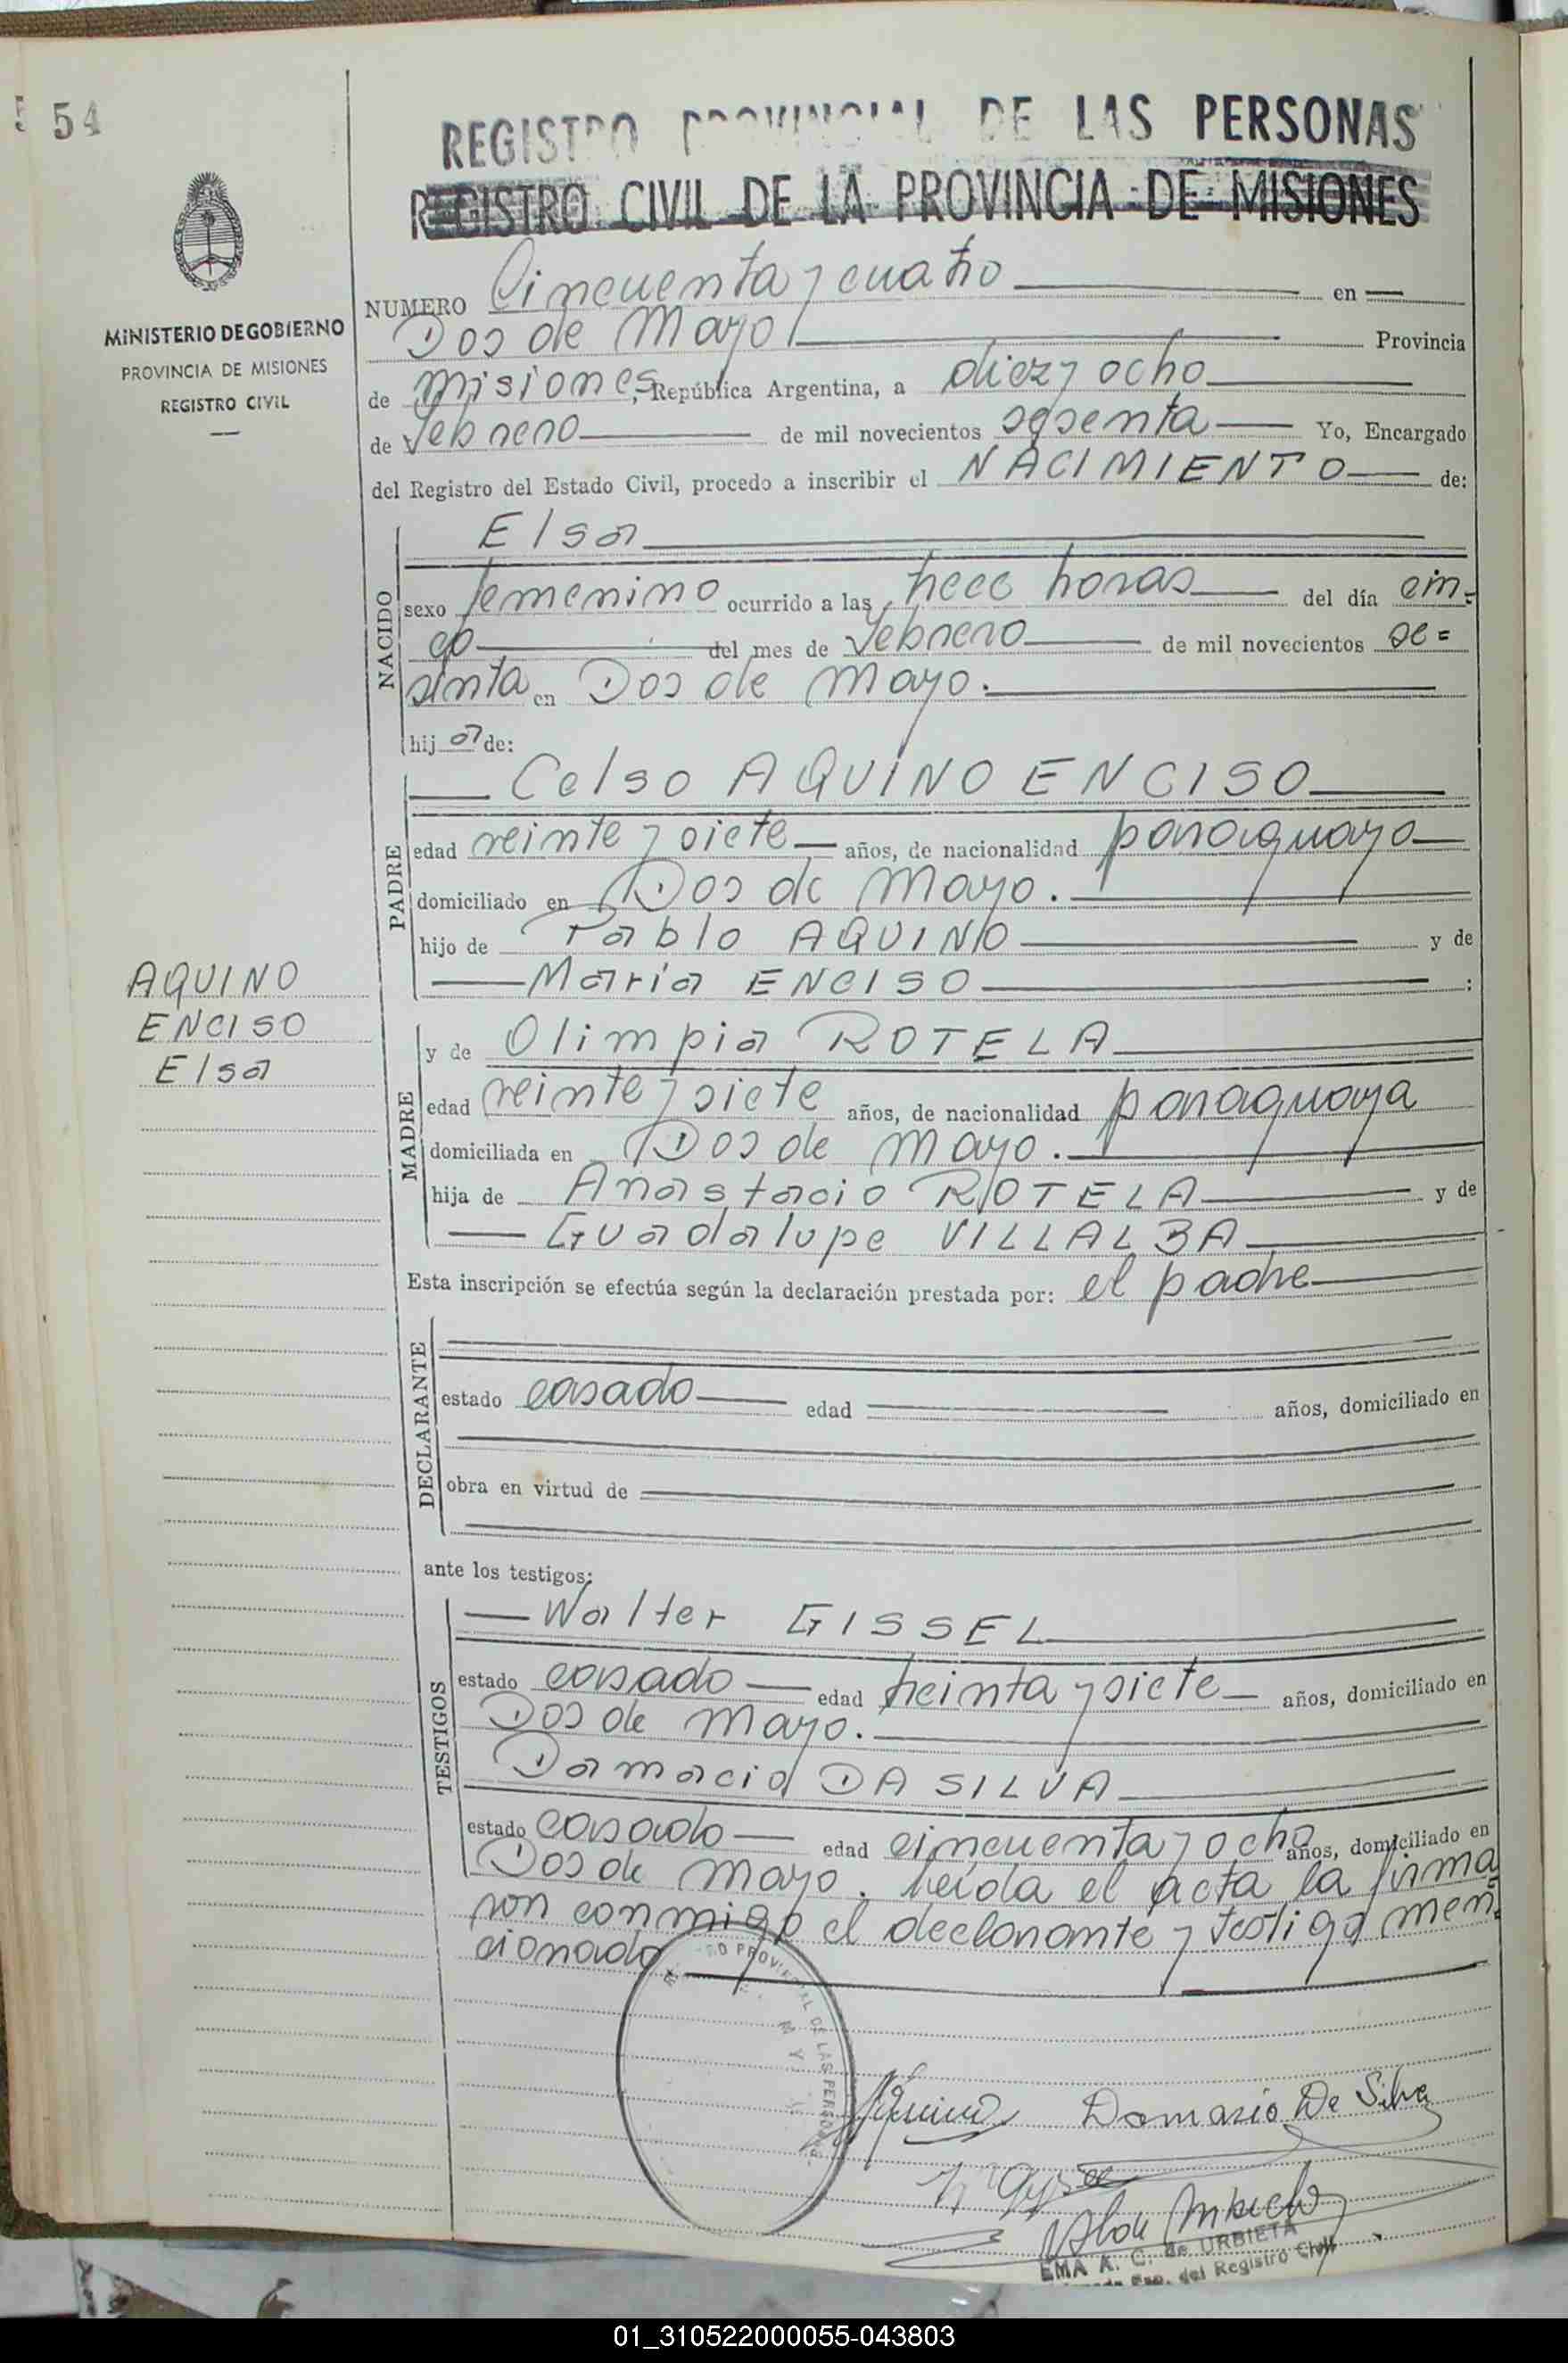 54
REGISTRO PROVINCIAL DE LAS PERSONAS
REGISTRO CIVIL DE LA PROVINCIA DE MISIONES
MINISTERIO DE GOBIERNO
PROVINCIA DE MISIONES
REGISTRO CIVIL
NUMERO Cincuenta y cuatro en
Dos de Mayo Provincia
de Misiones, República Argentina, a diez y ocho
de Febrero de mil novecientos sesenta Yo, Encargado
del Registro del Estado Civil, procedo a inscribir el NACIMIENTO de:
NACIDO
Elsa
sexo femenino ocurrido a las trece horas del día cin-
co del mes de Febrero de mil novecientos se=
sinta en Dos de Mayo.
hij a de:
PADRE
Celso AQUINO ENCISO
edad veinte y siete años, de nacionalidad paraguaya
domiciliado en Dos de Mayo.
hijo de Pablo AQUINO y de
Maria ENCISO :
AQUINO
ENCISO
Elsa
MADRE
y de Olimpia ROTELA
edad veinte y siete años, de nacionalidad paraguaya
domiciliada en Dos de Mayo.
hija de Anastacio ROTELA y de
Guadalupe VILLALBA
Esta inscripción se efectúa según la declaración prestada por: el padre
DECLARANTE
estado casado edad años, domiciliado en
obra en virtud de
ante los testigos:
TESTIGOS
Walter GISSEL
estado casado edad treinta y siete años, domiciliado en
Dos de Mayo.
Damacio DA SILVA
estado casado edad cincuenta y ocho años, domiciliado en
Dos de Mayo. Leída el acta la firma
ron conmigo el declarante y testigo men
cionado
PROVINCIAL DE LAS PERSONAS
Aquino Domasio De Silva
EMA A. C. de URBIETA
del Registro Civil
01_310522000055-043803